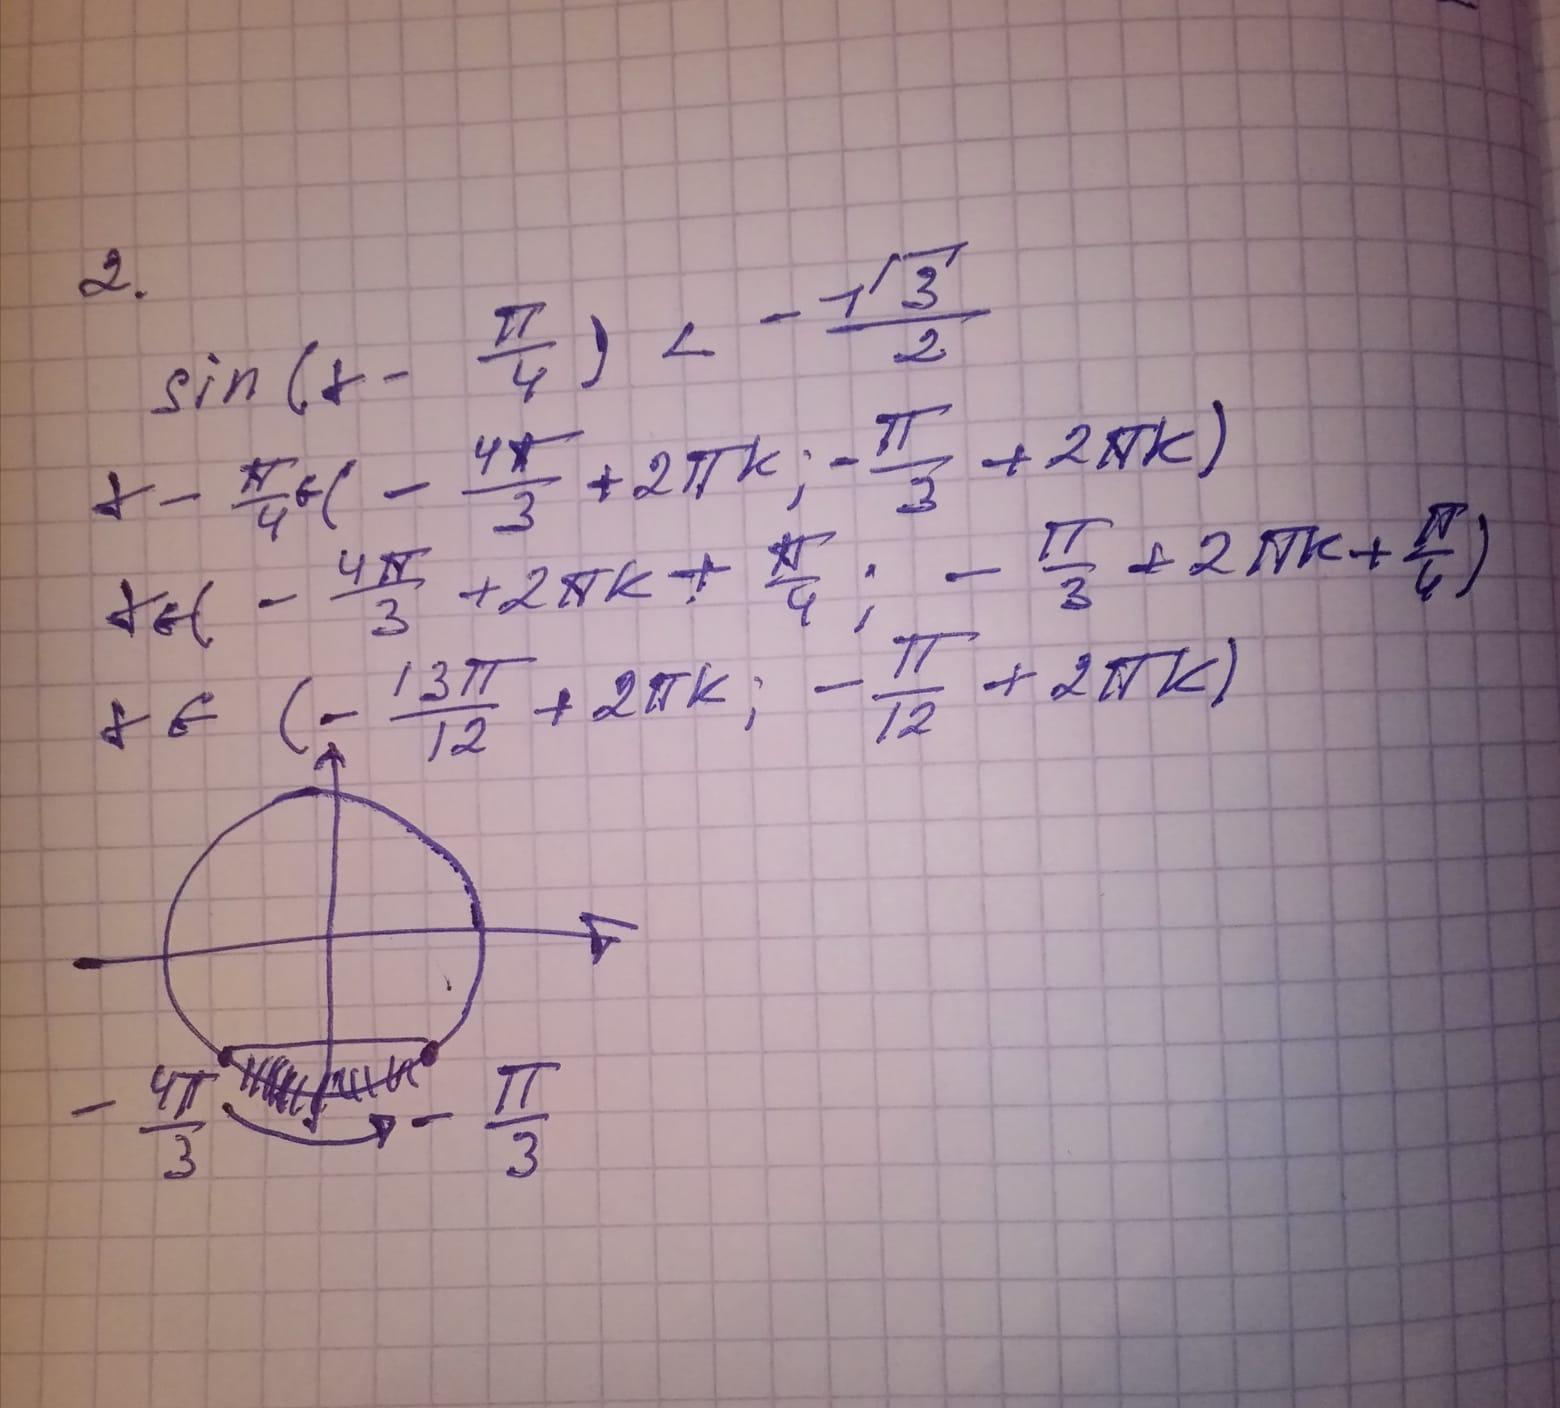 2.
sin(x - π/4) < -√3/2
x - π/4 ∈ (-4π/3 + 2πk; -π/3 + 2πk)
x ∈ (-4π/3 + 2πk + π/4; -π/3 + 2πk + π/4)
x ∈ (-13π/12 + 2πk; -π/12 + 2πk)
-4π/3 -π/3